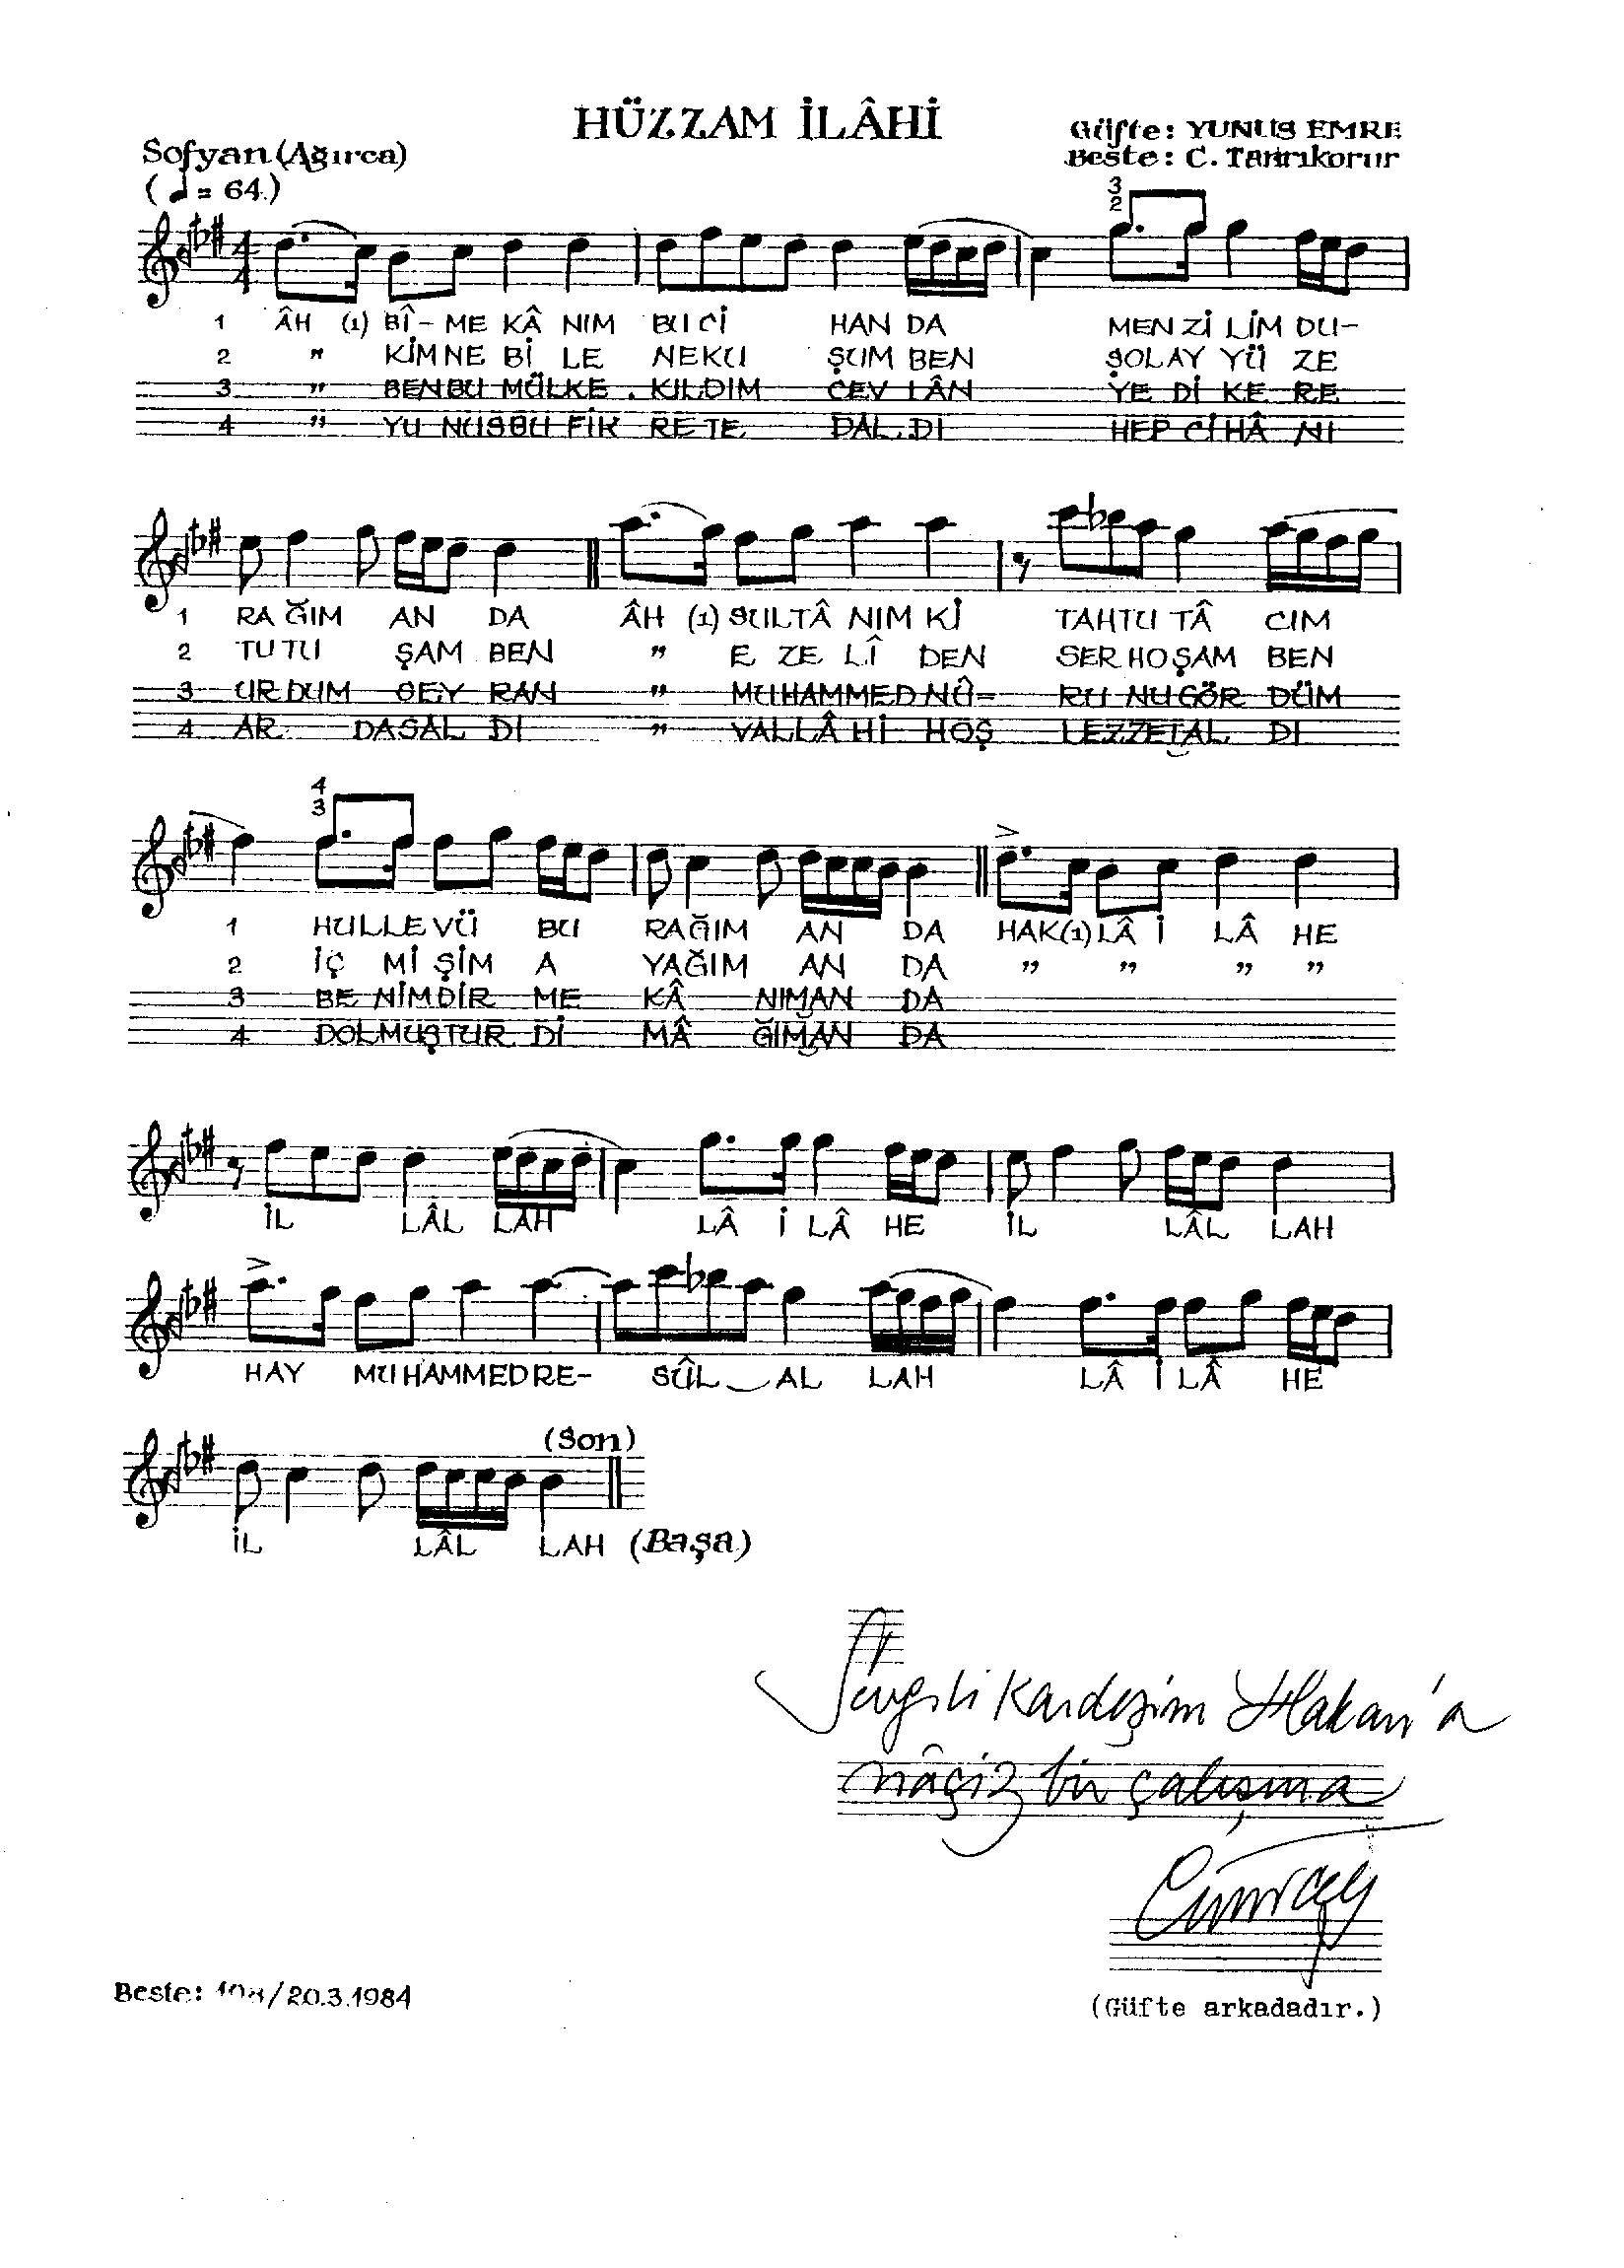 HÜZZAM İLÂHİ
Güfte: YUNUS EMRE
Sofyan (Ağırca)
Beste: C. Tanrıkorur
(♩ = 64.)
3
2
4
4
1 ÂH (1) BÎ- ME KÂ NIM BU Cİ HAN DA MEN Zİ LİM DU-
2 " KİM NE Bİ LE NE KU ŞUM BEN ŞOL AY YÜ ZE
3 " BEN BU MÜLKE . KILDIM CEV LÂN YE Dİ KE RE
4 " YU NUS BU FİK RE TE DAL DI HEP Cİ HÂ NI
1 RA ĞIM AN DA ÂH (1) SUL TÂ NIM Kİ TAHTU TÂ CIM
2 TU TU ŞAM BEN " E ZE LÎ DEN SER HO ŞAM BEN
3 URDUM SEY RAN " MUHAMMED NÛ- RU NU GÖR DÜM
4 AR DA SAL DI " VALLÂ Hİ HOŞ LEZZET AL DI
4
3
1 HULLE VÜ BU RAĞIM AN DA HAK (1) LÂ İ LÂ HE
2 İÇ Mİ ŞİM A YAĞIM AN DA " " " "
3 BE NİMDİR ME KÂ NIM AN DA
4 DOLMUŞTUR Dİ MÂ ĞIM AN DA
İL LÂL LAH LÂ İ LÂ HE İL LÂL LAH
HAY MUHAMMED RE- SÛL AL LAH LÂ İ LÂ HE
(Son)
İL LÂL LAH (Başa)
Sevgili Kardeşim Hakan'a
nâçiz bir çalışma
Beste: 108/20.3.1984
(Güfte arkadadır.)